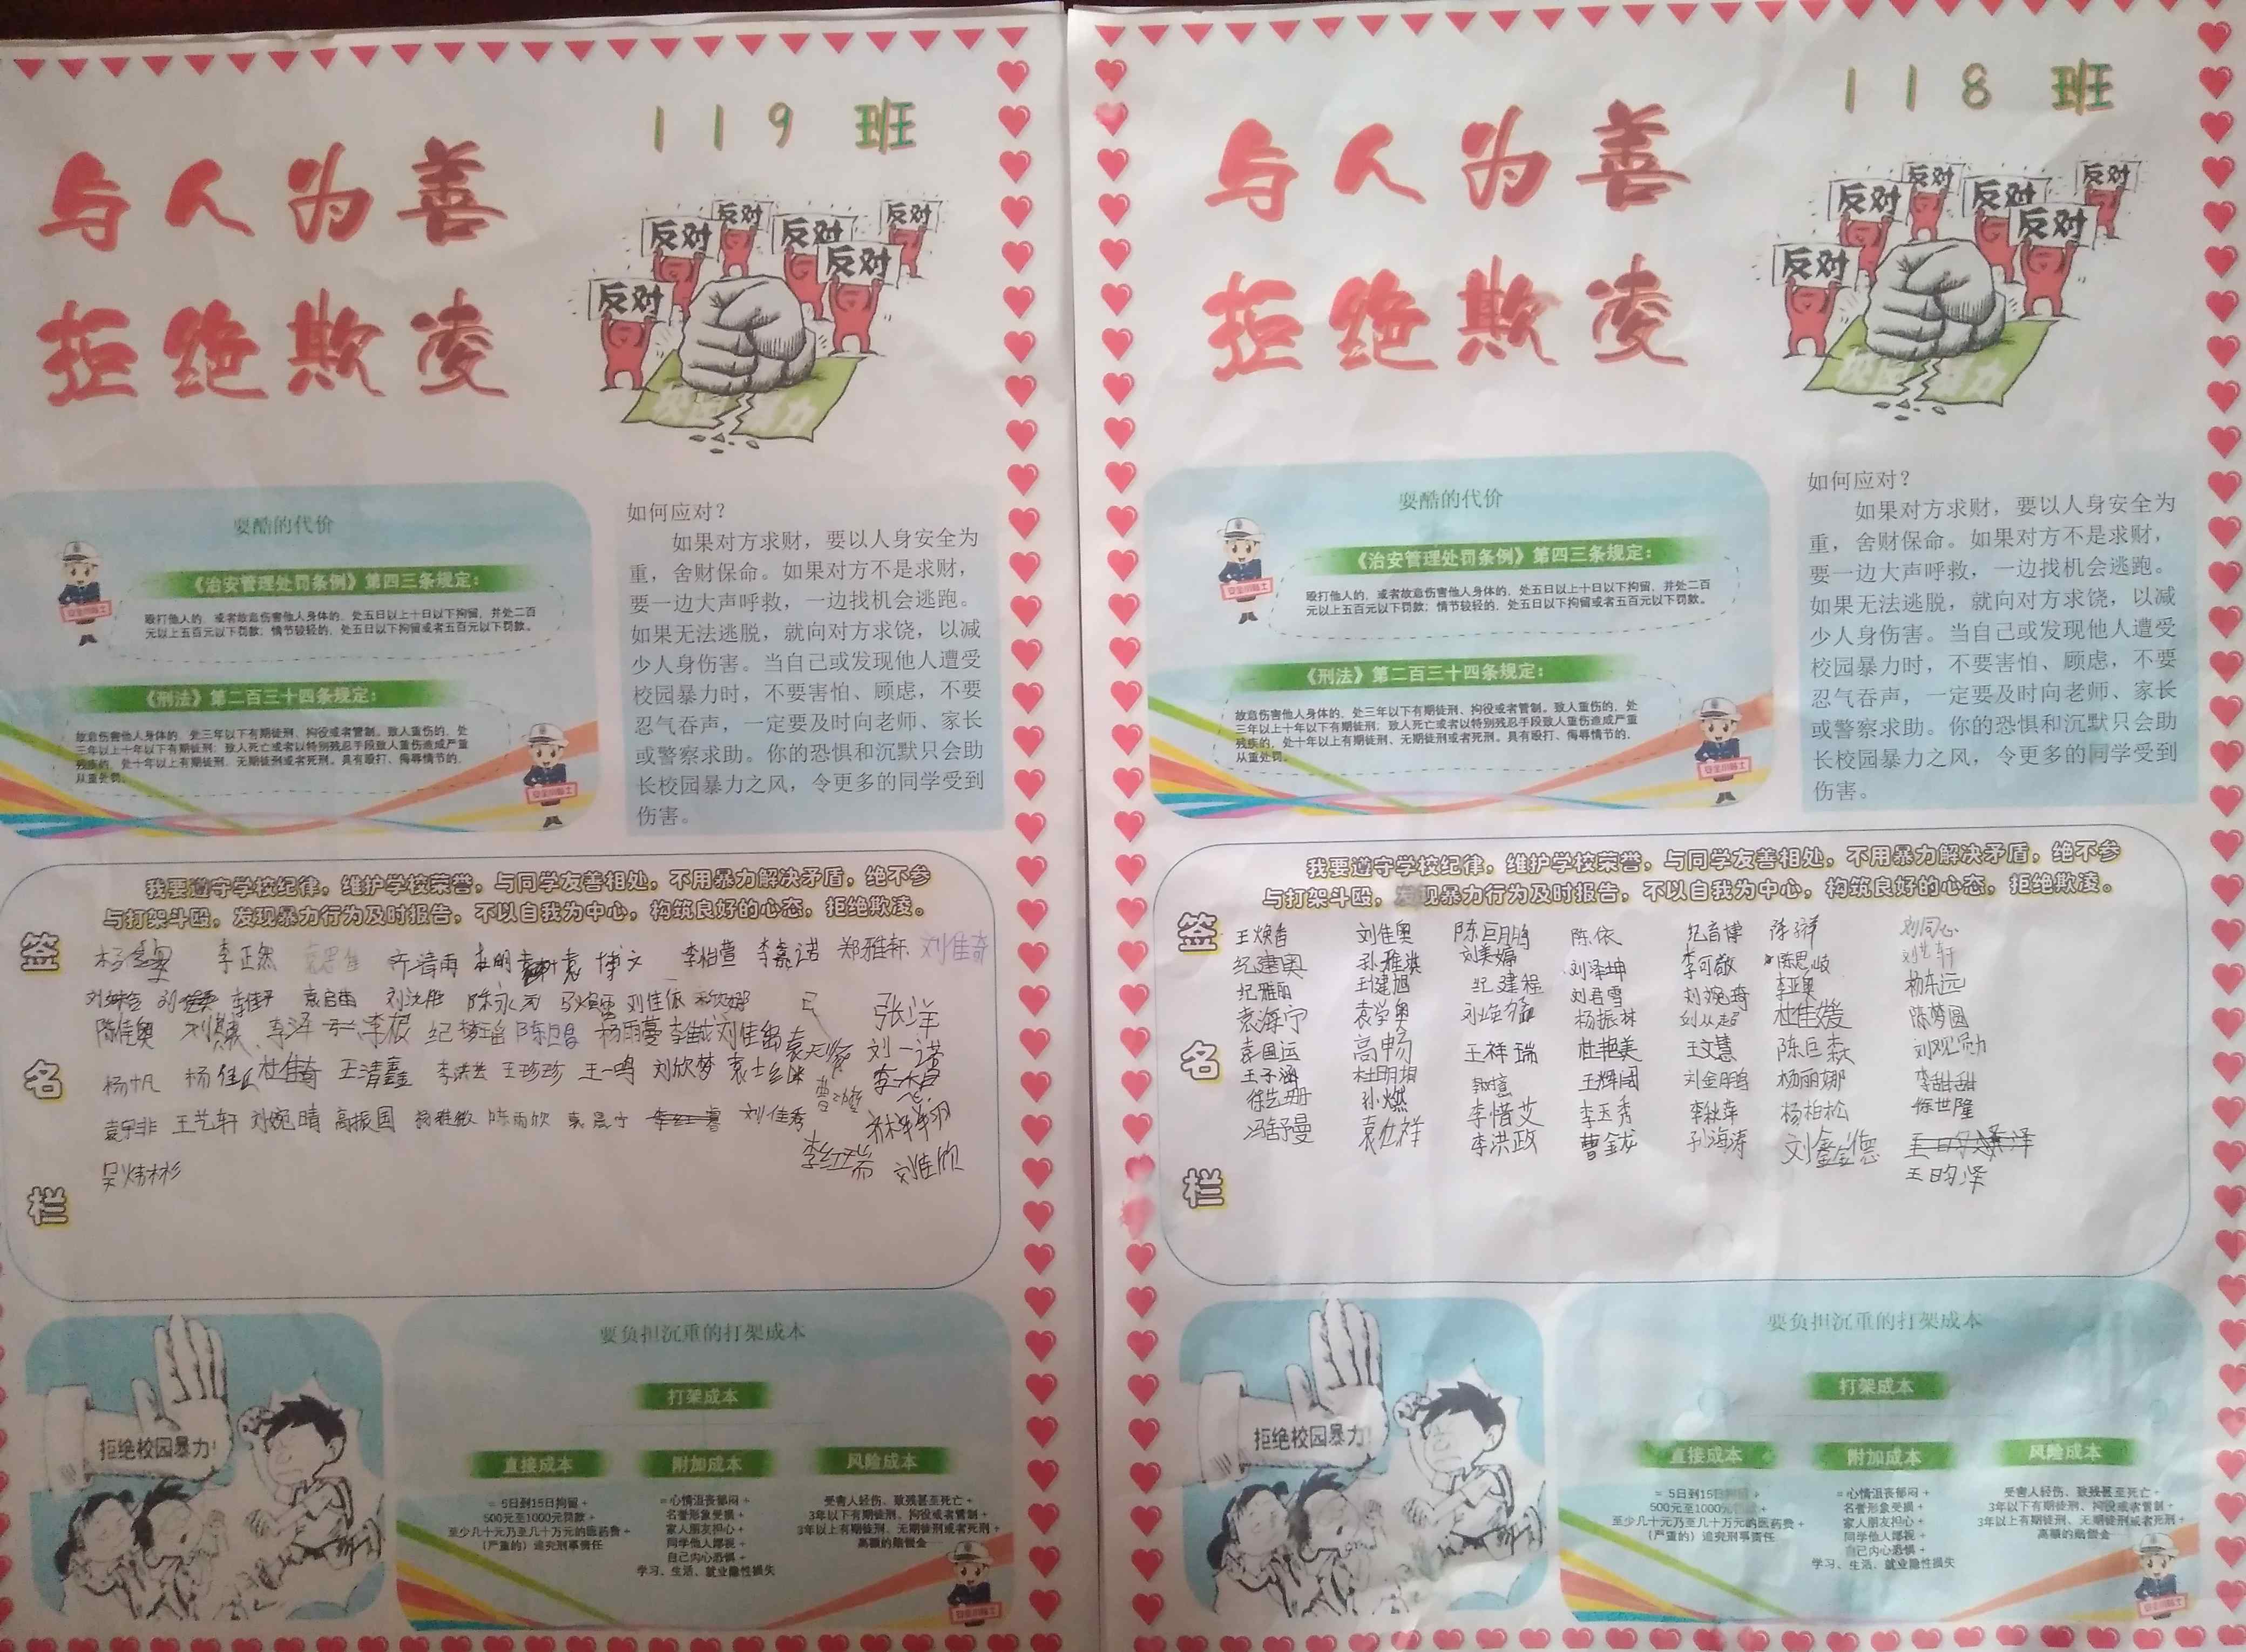 119 班
与人为善
拒绝欺凌
反对
反对
反对
反对
反对
反对
校园暴力
耍酷的代价
《治安管理处罚条例》第四三条规定：
殴打他人的，或者故意伤害他人身体的，处五日以上十日以下拘留，并处二百
元以上五百元以下罚款；情节较轻的，处五日以下拘留或者五百元以下罚款。
《刑法》第二百三十四条规定：
故意伤害他人身体的，处三年以下有期徒刑、拘役或者管制。致人重伤的，处
三年以上十年以下有期徒刑；致人死亡或者以特别残忍手段致人重伤造成严重
残疾的，处十年以上有期徒刑、无期徒刑或者死刑。具有殴打、侮辱情节的，
从重处罚。
如何应对？
如果对方求财，要以人身安全为
重，舍财保命。如果对方不是求财，
要一边大声呼救，一边找机会逃跑。
如果无法逃脱，就向对方求饶，以减
少人身伤害。当自己或发现他人遭受
校园暴力时，不要害怕、顾虑，不要
忍气吞声，一定要及时向老师、家长
或警察求助。你的恐惧和沉默只会助
长校园暴力之风，令更多的同学受到
伤害。
我要遵守学校纪律，维护学校荣誉，与同学友善相处，不用暴力解决矛盾，绝不参
与打架斗殴，发现暴力行为及时报告，不以自我为中心，构筑良好的心态，拒绝欺凌。
签名栏
李正然 齐清雨 李柏萱 李嘉诺 郑雅轩 刘佳奇
刘沈胜 刘佳依 张洋
陈佳奥 李泽 陈巨昌 杨雨蔓 刘一诺
杨帆 杜佳奇 王清鑫 王珍珍 王一鸣 刘欣梦
王艺轩 刘婉晴 高振国 陈雨欣 刘佳秀
李红瑞 刘佳欣
拒绝校园暴力！
要负担沉重的打架成本
打架成本
直接成本 附加成本 风险成本
= 5日到15日拘留 +
500元至1000元罚款 +
至少几十元乃至几十万元的医药费 +
（严重的）追究刑事责任
= 心情沮丧郁闷 +
名誉形象受损 +
家人朋友担心 +
同学他人鄙视 +
自己内心恐惧 +
学习、生活、就业隐性损失
受害人轻伤、致残甚至死亡 +
3年以下有期徒刑、拘役或者管制 +
3年以上有期徒刑、无期徒刑或者死刑 +
高额的赔偿金
118 班
与人为善
拒绝欺凌
反对
反对
反对
反对
反对
反对
校园暴力
耍酷的代价
《治安管理处罚条例》第四三条规定：
殴打他人的，或者故意伤害他人身体的，处五日以上十日以下拘留，并处二百
元以上五百元以下罚款；情节较轻的，处五日以下拘留或者五百元以下罚款。
《刑法》第二百三十四条规定：
故意伤害他人身体的，处三年以下有期徒刑、拘役或者管制。致人重伤的，处
三年以上十年以下有期徒刑；致人死亡或者以特别残忍手段致人重伤造成严重
残疾的，处十年以上有期徒刑、无期徒刑或者死刑。具有殴打、侮辱情节的，
从重处罚。
如何应对？
如果对方求财，要以人身安全为
重，舍财保命。如果对方不是求财，
要一边大声呼救，一边找机会逃跑。
如果无法逃脱，就向对方求饶，以减
少人身伤害。当自己或发现他人遭受
校园暴力时，不要害怕、顾虑，不要
忍气吞声，一定要及时向老师、家长
或警察求助。你的恐惧和沉默只会助
长校园暴力之风，令更多的同学受到
伤害。
我要遵守学校纪律，维护学校荣誉，与同学友善相处，不用暴力解决矛盾，绝不参
与打架斗殴，发现暴力行为及时报告，不以自我为中心，构筑良好的心态，拒绝欺凌。
签名栏
王焕香 刘佳奥 陈巨鹏 陈依 纪育博 刘同心
纪建奥 孙雅淇 刘美媂 刘泽坤 李可敬 陈思岐 刘艺轩
纪雅丽 王健旭 纪建程 刘君雪 刘婉琦 李亚奥 杨东远
袁海宁 袁学奥 杨振林 刘从超 杜佳媛 陈梦圆
彭国运 高畅 王祥瑞 杜艳美 王文慧 陈巨森 刘观勋
王子涵 杜明坦 王辉阔 刘金鹏 杨丽娜 李甜甜
徐艺册 孙燃 李惜艾 李玉秀 李林萍 杨柏松 徐世隆
冯舒曼 袁仕祥 李洪政 曹金龙 孙海涛 刘鑫德
王昀泽
拒绝校园暴力！
要负担沉重的打架成本
打架成本
直接成本 附加成本 风险成本
= 5日到15日拘留 +
500元至1000元罚款 +
至少几十元乃至几十万元的医药费 +
（严重的）追究刑事责任
= 心情沮丧郁闷 +
名誉形象受损 +
家人朋友担心 +
同学他人鄙视 +
自己内心恐惧 +
学习、生活、就业隐性损失
受害人轻伤、致残甚至死亡 +
3年以下有期徒刑、拘役或者管制 +
3年以上有期徒刑、无期徒刑或者死刑 +
高额的赔偿金